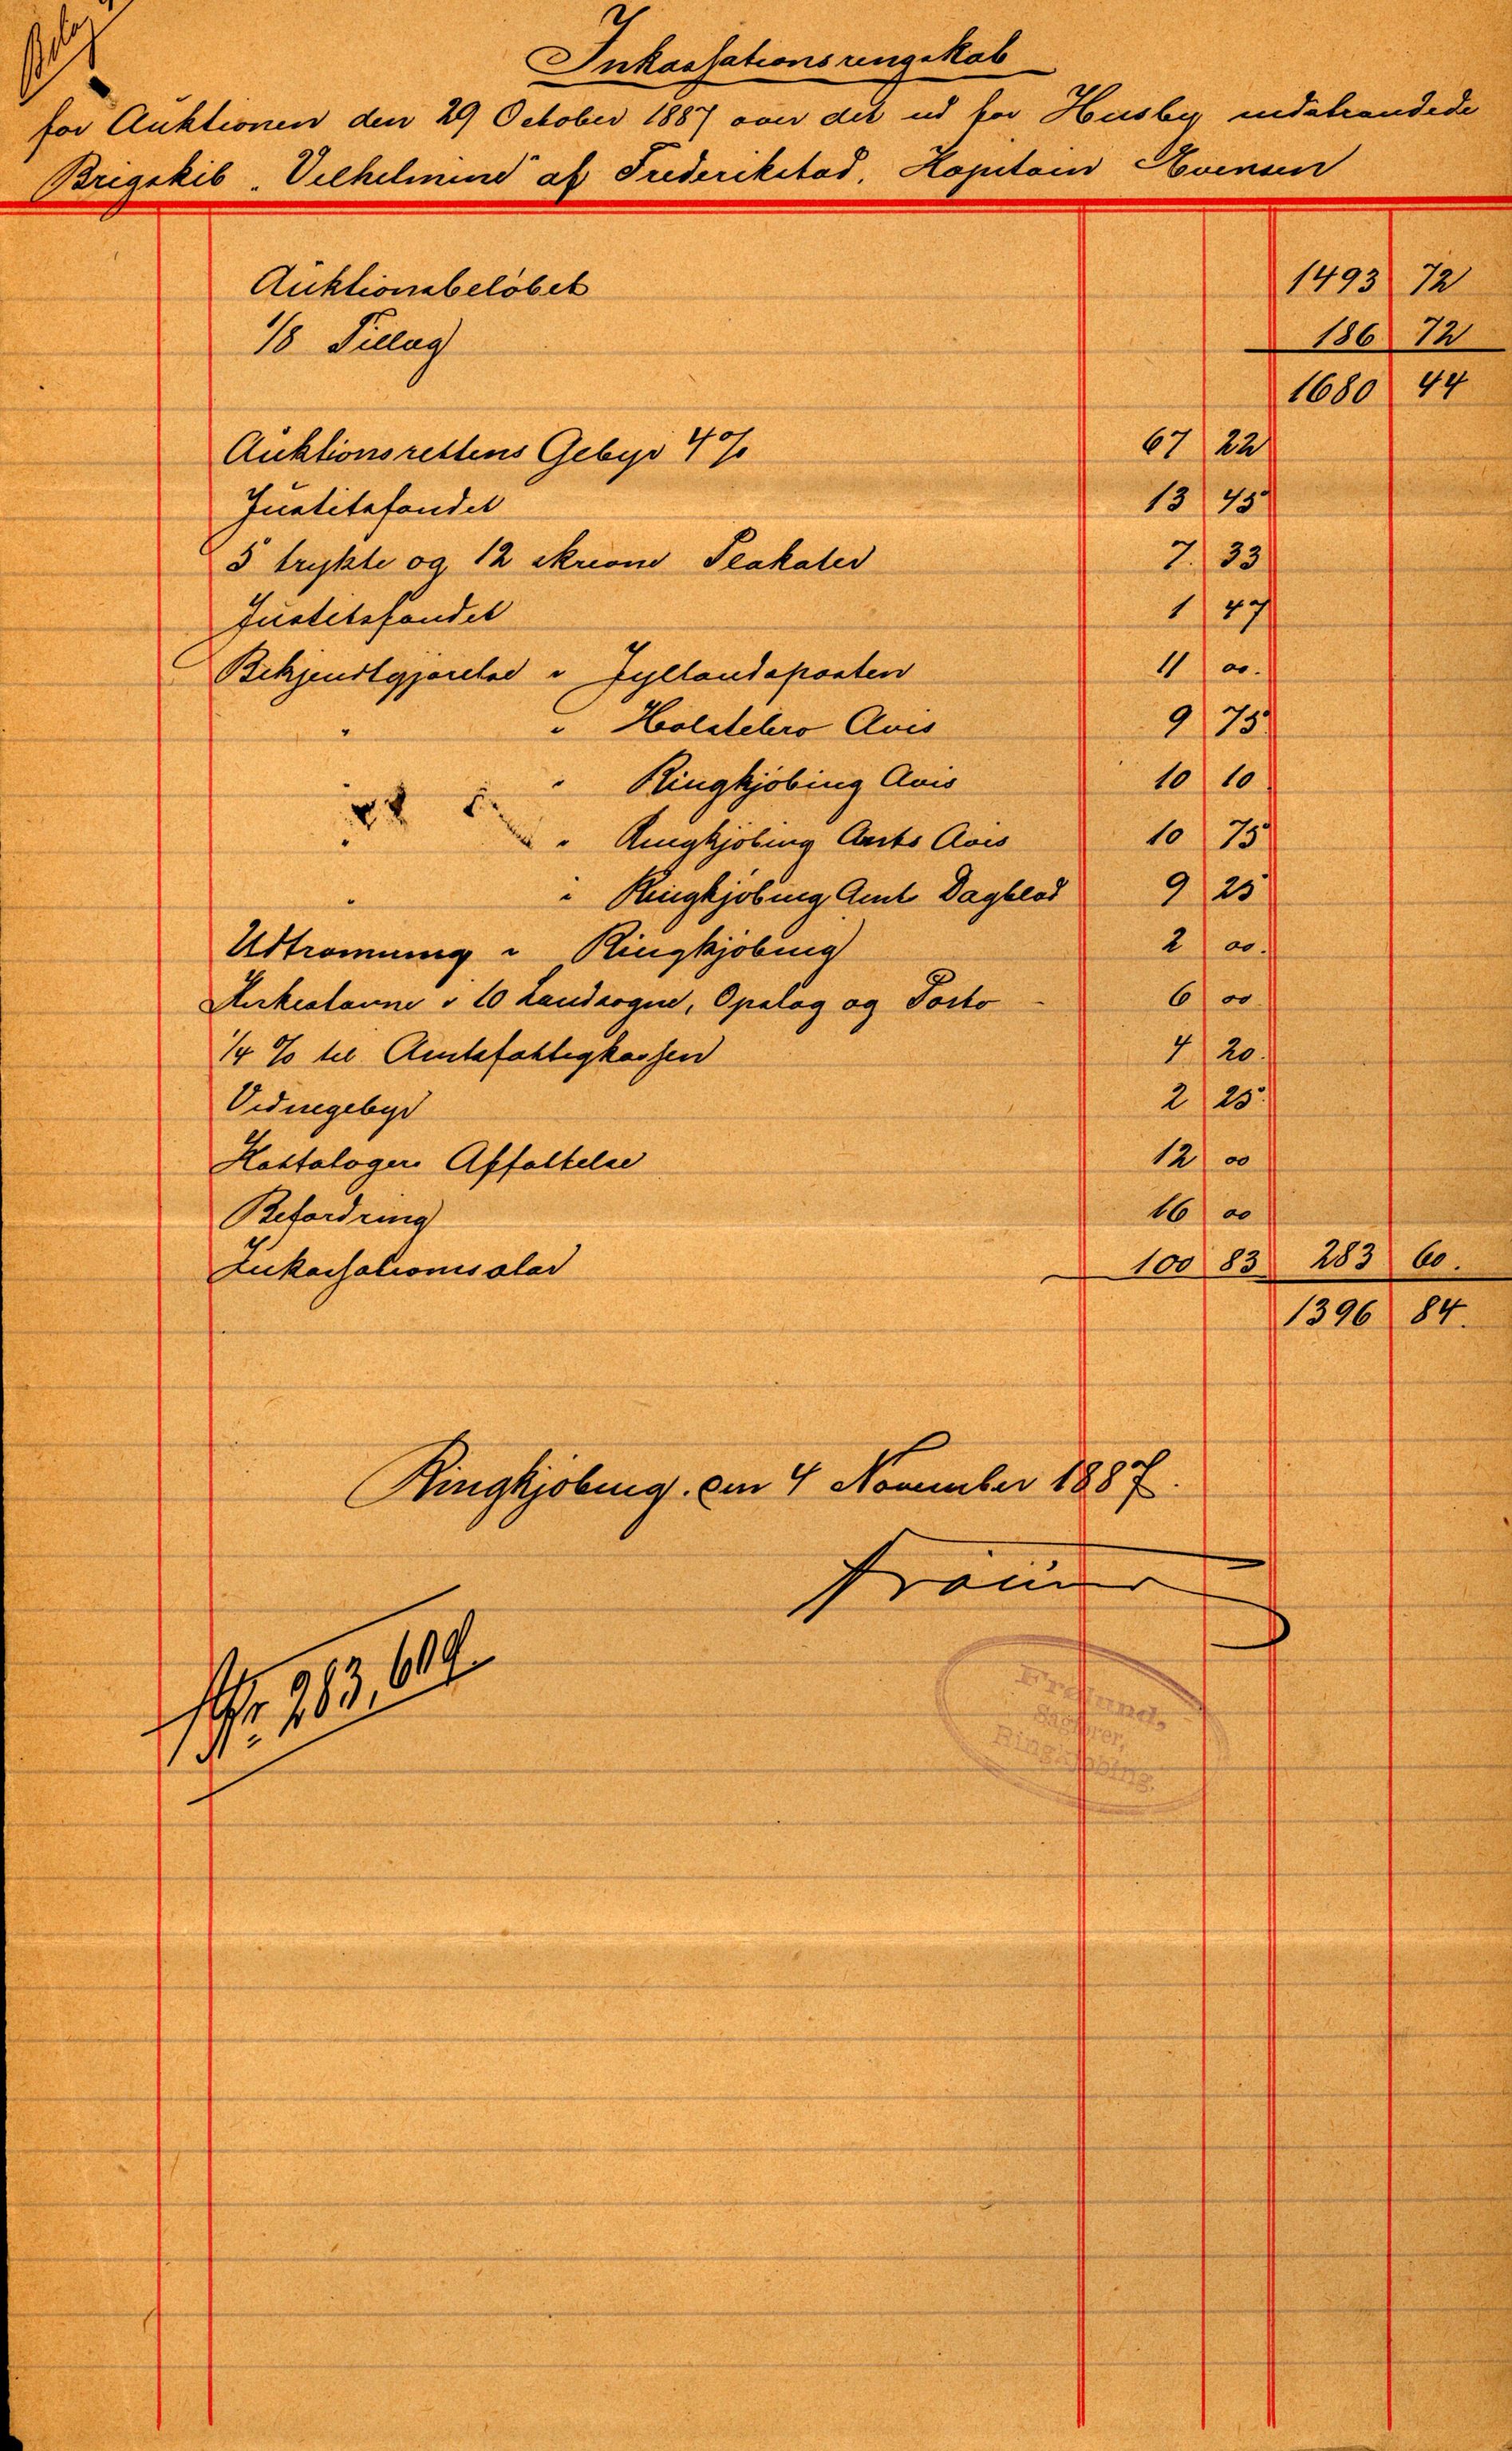 Inkassationsregnskab
for Auktionen den 29 October 1887 over det ud for Husby indstrandede
Brigskib "Vilhelmine" af Frederikstad, Kapitain Evensen
Auktionsbeløbet 1493 72
1/8 Tillæg 186 72
1680 44
Auktionsrettens Gebyr 4% 67 22
Justitsfondet 13 45
5 trykte og 12 skrevne Plakater 7 33
Justitsfondet 1 47
Bekjendtgjørelse i Jyllandsposten 11 00.
" " Holstebro Avis 9 75
" Ringkjøbing Avis 10 10
" " Ringkjøbing Amts Avis 10 75
" " Ringkjøbing Amts Dagblad 9 25
Udtromning i Ringkjøbing 2 00.
Kirkestævne i 10 Landsogne, Opslag og Porto - 6 00
1/4 % til Amtsfattigkassen 4 20.
Vidnegebyr 2 25.
Kattalogers Affattelse 12 00
Befordring 16 00
Inkassationssalær 100 83 283 60.
1396 84.
Ringkjøbing. den 4 November 1887.
Kr. 283,60
Frølund,
Sagfører,
Ringkjøbing.